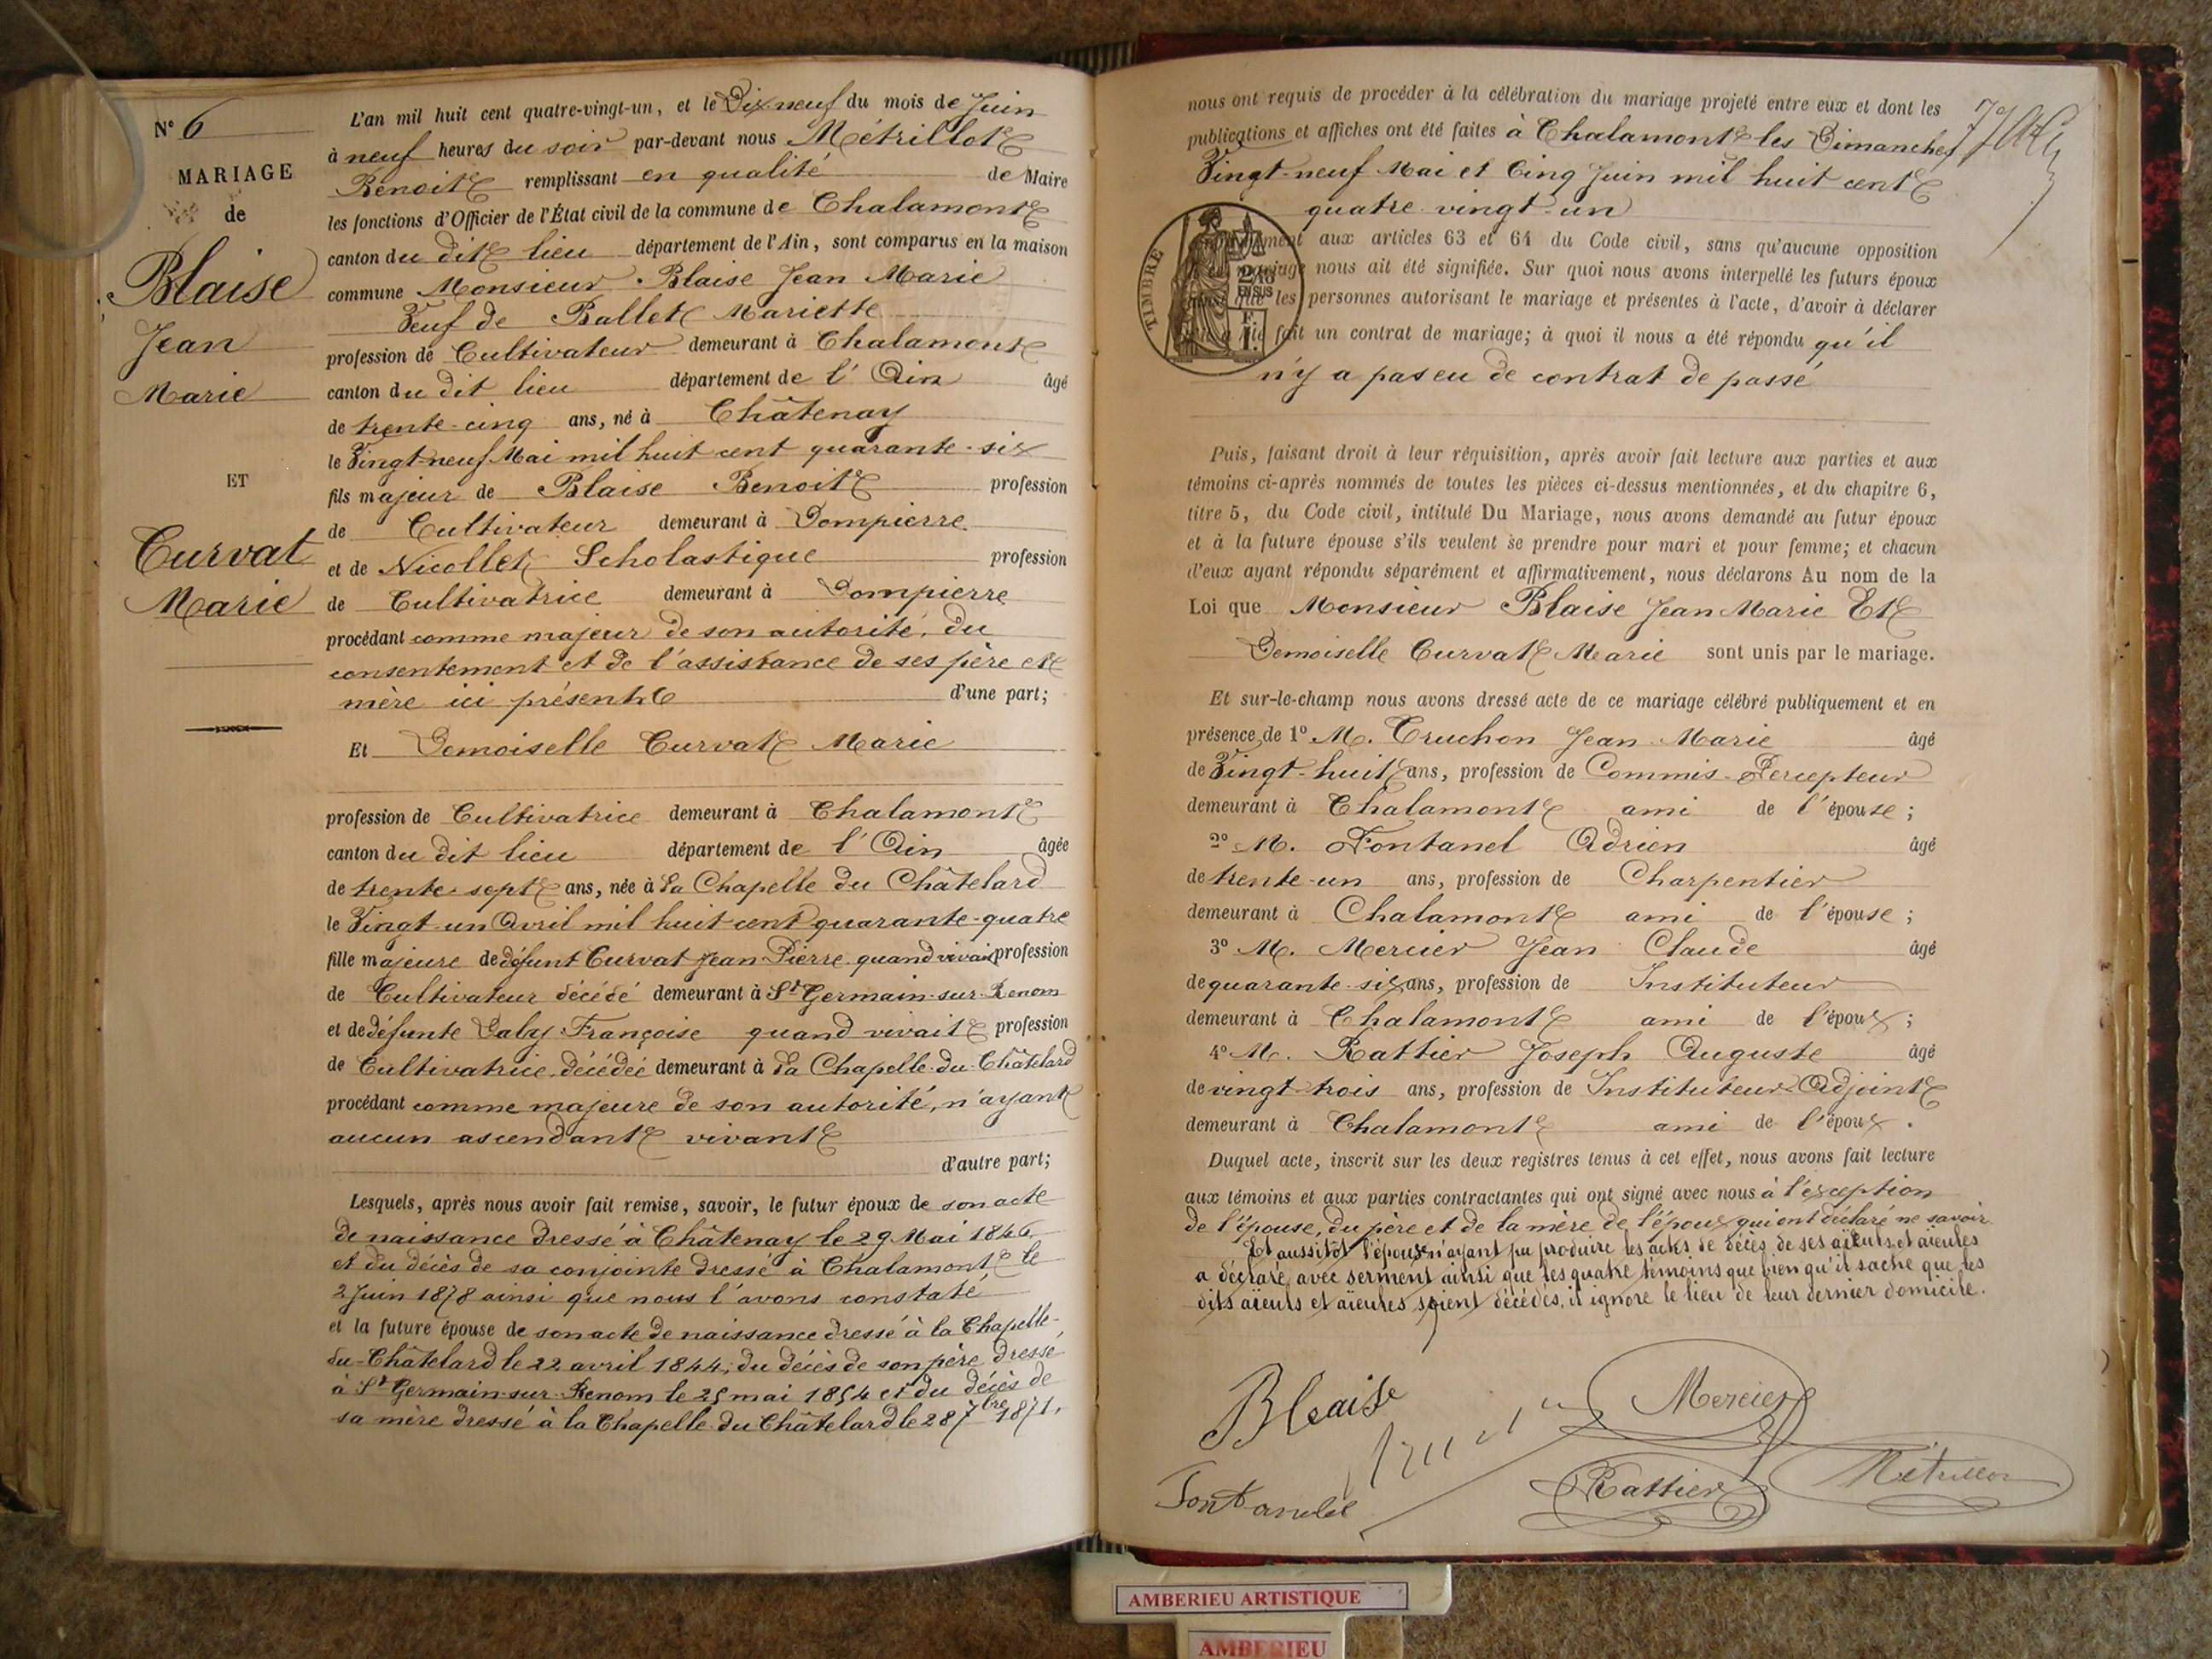 N° 6
MARIAGE
de
Blaise
Jean
Marie
ET
Curvat
Marie
L'an mil huit cent quatre-vingt-un, et le Dix-neuf du mois de Juin
à neuf heures du soir par-devant nous Métrillot
Benoit remplissant en qualité de Maire
les fonctions d'Officier de l'État civil de la commune de Chalamont
canton du dit lieu département de l'Ain, sont comparus en la maison
commune Monsieur Blaise Jean Marie
Veuf de Ballet Mariette
profession de Cultivateur demeurant à Chalamont
canton du dit lieu département de l'Ain âgé
de trente-cinq ans, né à Châtenay
le Vingt-neuf Mai mil huit cent quarante-six
fils majeur de Blaise Benoit profession
de Cultivateur demeurant à Dompierre
et de Nicollet Scholastique profession
de Cultivatrice demeurant à Dompierre
procédant comme majeur de son autorité, du
consentement et de l'assistance de ses père et
mère ici présents d'une part;
Et Demoiselle Curvat Marie
profession de Cultivatrice demeurant à Chalamont
canton du dit lieu département de l'Ain âgée
de trente-sept ans, née à La Chapelle du Châtelard
le Vingt-un Avril mil huit cent quarante-quatre
fille majeure de défunt Curvat Jean Pierre quand vivait profession
de Cultivateur décédé demeurant à St Germain-sur-Renom
et de défunte Galy Françoise quand vivait profession
de Cultivatrice décédée demeurant à La Chapelle-du-Châtelard
procédant comme majeure de son autorité, n'ayant
aucun ascendant vivant
d'autre part;
Lesquels, après nous avoir fait remise, savoir, le futur époux de son acte
de naissance dressé à Châtenay le 29 Mai 1846
et du décès de sa conjointe dressé à Chalamont le
2 Juin 1878 ainsi que nous l'avons constaté
et la future épouse de son acte de naissance dressé à la Chapelle-
du-Châtelard le 22 avril 1844, du décès de son père dressé
à St Germain-sur-Renom le 25 mai 1854 et du décès de
sa mère dressé à la Chapelle du Châtelard le 28 7bre 1871.
nous ont requis de procéder à la célébration du mariage projeté entre eux et dont les
publications et affiches ont été faites à Chalamont les Dimanches
Vingt-neuf Mai et Cinq Juin mil huit cent
quatre vingt-un
aux articles 63 et 64 du Code civil, sans qu'aucune opposition
mariage nous ait été signifiée. Sur quoi nous avons interpellé les futurs époux
que les personnes autorisant le mariage et présentes à l'acte, d'avoir à déclarer
fait un contrat de mariage; à quoi il nous a été répondu qu'il
n'y a pas eu de contrat de passé
TIMBRE
Puis, faisant droit à leur réquisition, après avoir fait lecture aux parties et aux
témoins ci-après nommés de toutes les pièces ci-dessus mentionnées, et du chapitre 6,
titre 5, du Code civil, intitulé Du Mariage, nous avons demandé au futur époux
et à la future épouse s'ils veulent se prendre pour mari et pour femme; et chacun
d'eux ayant répondu séparément et affirmativement, nous déclarons Au nom de la
Loi que Monsieur Blaise Jean Marie Et
Demoiselle Curvat Marie sont unis par le mariage.
Et sur-le-champ nous avons dressé acte de ce mariage célébré publiquement et en
présence de 1° M. Truchon Jean Marie âgé
de Vingt-huit ans, profession de Commis-Percepteur
demeurant à Chalamont ami de l'épouse;
2° M. Fontanel Adrien âgé
de trente-un ans, profession de Charpentier
demeurant à Chalamont ami de l'épouse;
3° M. Mercier Jean Claude âgé
de quarante-six ans, profession de Instituteur
demeurant à Chalamont ami de l'époux;
4° M. Rattier Joseph Auguste âgé
de vingt-trois ans, profession de Instituteur-Adjoint
demeurant à Chalamont ami de l'époux.
Duquel acte, inscrit sur les deux registres tenus à cet effet, nous avons fait lecture
aux témoins et aux parties contractantes qui ont signé avec nous à l'exception
de l'épouse, du père et de la mère de l'époux qui ont déclaré ne savoir.
Et aussitôt l'épouse n'ayant pu produire les actes de décès de ses aïeuls et aieules
a déclaré avec serment ainsi que les quatre témoins que bien qu'il sache que les
dits aïeuls et aïeules soient décédés, il ignore le lieu de leur dernier domicile.
Blaise
Mercier
Fontanelel
Rattier
Métrillot
AMBERIEU ARTISTIQUE
AMBERIEU